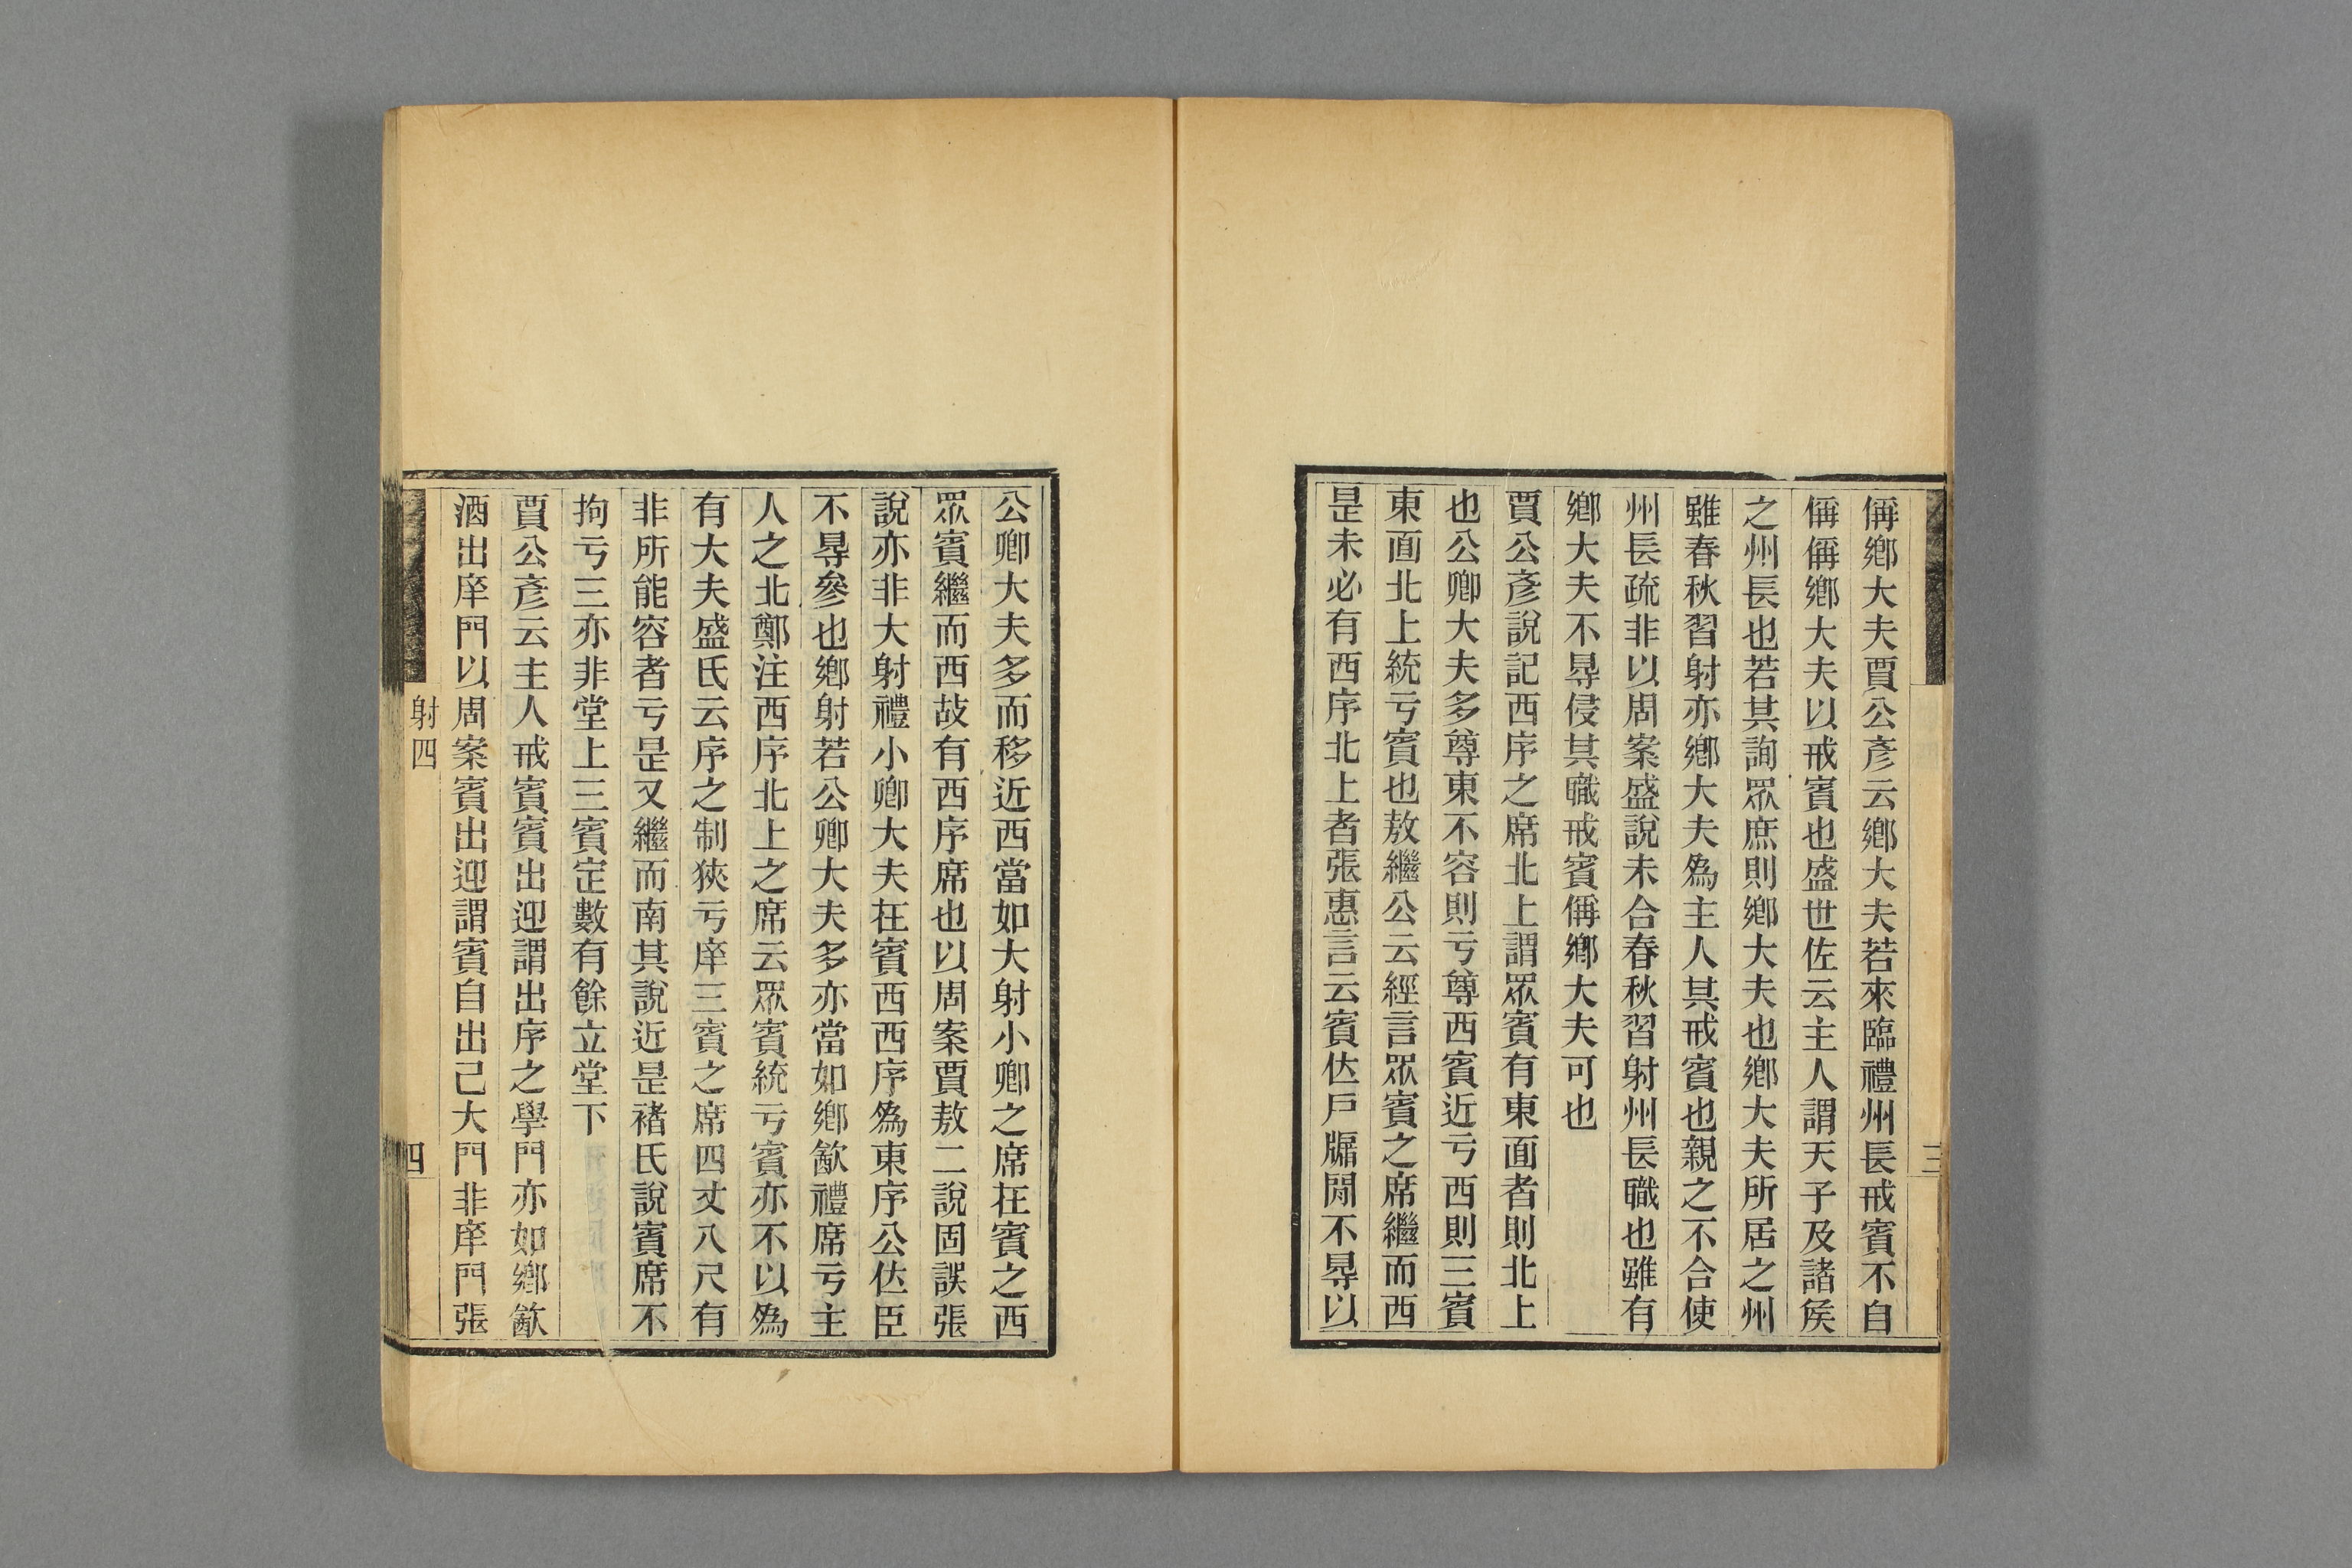 偁鄕大夫賈公彥云鄕大夫若來臨禮州長戒賓不自
偁偁鄕大夫以戒賓也盛世佐云主人謂天子及諸矦
之州長也若其詢眾庶則鄕大夫也鄕大夫所居之州
雖春秋習射亦鄕大夫爲主人其戒賓也親之不合使
州長疏非以周案盛說未合春秋習射州長職也雖有
鄕大夫不㝵侵其職戒賓偁鄕大夫可也
賈公彥說記西序之席北上謂眾賓有東面者則北上
也公卿大夫多尊東不容則亏尊西賓近亏西則三賓
東面北上統亏賓也敖繼公云經言眾賓之席繼而西
昰未必有西序北上者張惠言云賓㐀戶牖閒不㝵以
公卿大夫多而移近西當如大射小卿之席在賓之西
眾賓繼而西故有西序席也以周案賈敖二說固誤張
說亦非大射禮小卿大夫在賓西西序爲東序公㐀臣
不㝵參也鄕射若公卿大夫多亦當如鄕㱃禮席亏主
人之北鄭注西序北上之席云眾賓統亏賓亦不以爲
有大夫盛氏云序之制狹亏庠三賓之席四丈八尺有
非所能容者亏昰又繼而南其說近昰褚氏說賓席不
拘亏三亦非堂上三賓定數有餘立堂下
賈公彥云主人戒賓賓出迎謂出序之學門亦如鄕㱃
酒出庠門以周案賓出迎謂賓自出己大門非庠門張
射四
四
三